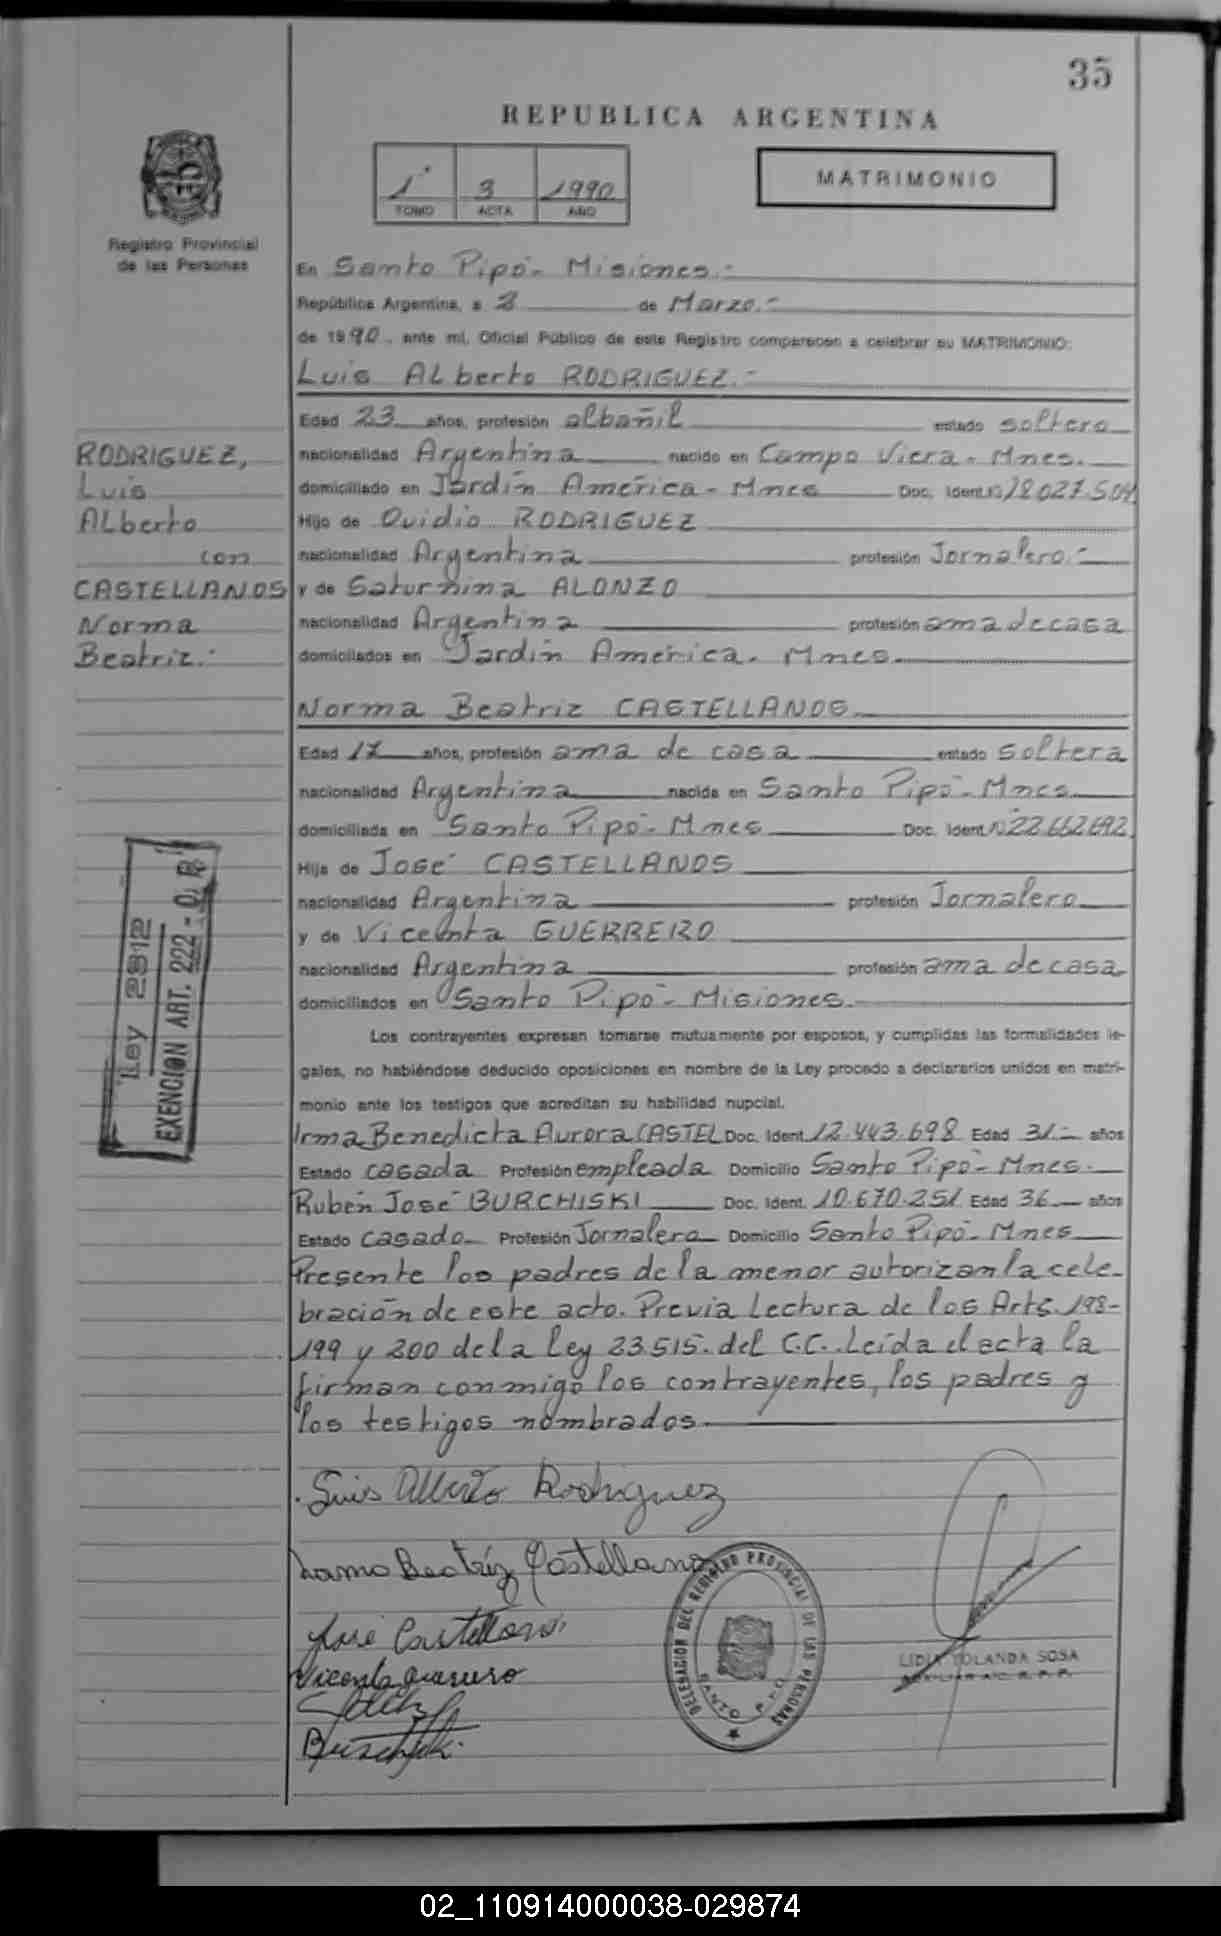 35
REPUBLICA ARGENTINA
1° 3 1990
TOMO ACTA AÑO
MATRIMONIO
Registro Provincial
de las Personas
En Santo Pipó - Misiones.-
República Argentina, a 2 de Marzo.-
de 1990, ante mí, Oficial Público de este Registro comparecen a celebrar su MATRIMONIO:
Luis ALberto RODRIGUEZ.-
Edad 23 años, profesión albañil estado soltero
nacionalidad Argentina nacido en Campo Viera - Mnes.
domiciliado en Jardín América - Mnes Doc. Ident. Nº 18.027.504
Hijo de Ovidio RODRIGUEZ
nacionalidad Argentina profesión Jornalero.-
y de Saturnina ALONZO
nacionalidad Argentina profesión ama de casa
domiciliados en Jardín América. Mnes.
RODRIGUEZ,
Luis
ALberto
con
CASTELLANOS
Norma
Beatriz.-
Norma Beatriz CASTELLANOS
Edad 17 años, profesión ama de casa estado soltera
nacionalidad Argentina nacida en Santo Pipó - Mnes
domiciliada en Santo Pipó - Mnes Doc. Ident. Nº 22.662.692
Hija de José CASTELLANOS
nacionalidad Argentina profesión Jornalero
y de Vicenta GUERRERO
nacionalidad Argentina profesión ama de casa
domiciliados en Santo Pipó - Misiones.
Ley 2812
EXENCION ART. 222 -
Los contrayentes expresan tomarse mutuamente por esposos, y cumplidas las formalidades le-
gales, no habiéndose deducido oposiciones en nombre de la Ley procedo a declararlos unidos en matri-
monio ante los testigos que acreditan su habilidad nupcial.
Irma Benedicta Aurora CASTEL Doc. Ident. 12.443.698 Edad 31.- años
Estado casada Profesión empleada Domicilio Santo Pipó - Mnes.
Rubén José BURCHISKI Doc. Ident. 10.670.251 Edad 36 años
Estado casado Profesión Jornalero Domicilio Santo Pipó - Mnes
Presente los padres de la menor autorizan la cele-
bración de este acto. Previa Lectura de los Arts. 198-
199 y 200 de la Ley 23.515. del C.C.. Leída el acta la
firman conmigo los contrayentes, los padres y
los testigos nombrados.
Luis Alberto Rodriguez
Norma Beatriz Castellanos
José Castellano
Vicenta Guerrero
DELEGACION DEL REGISTRO PROVINCIAL DE LAS PERSONAS
SANTO PIPO
LIDIA YOLANDA SOSA
02_110914000038-029874